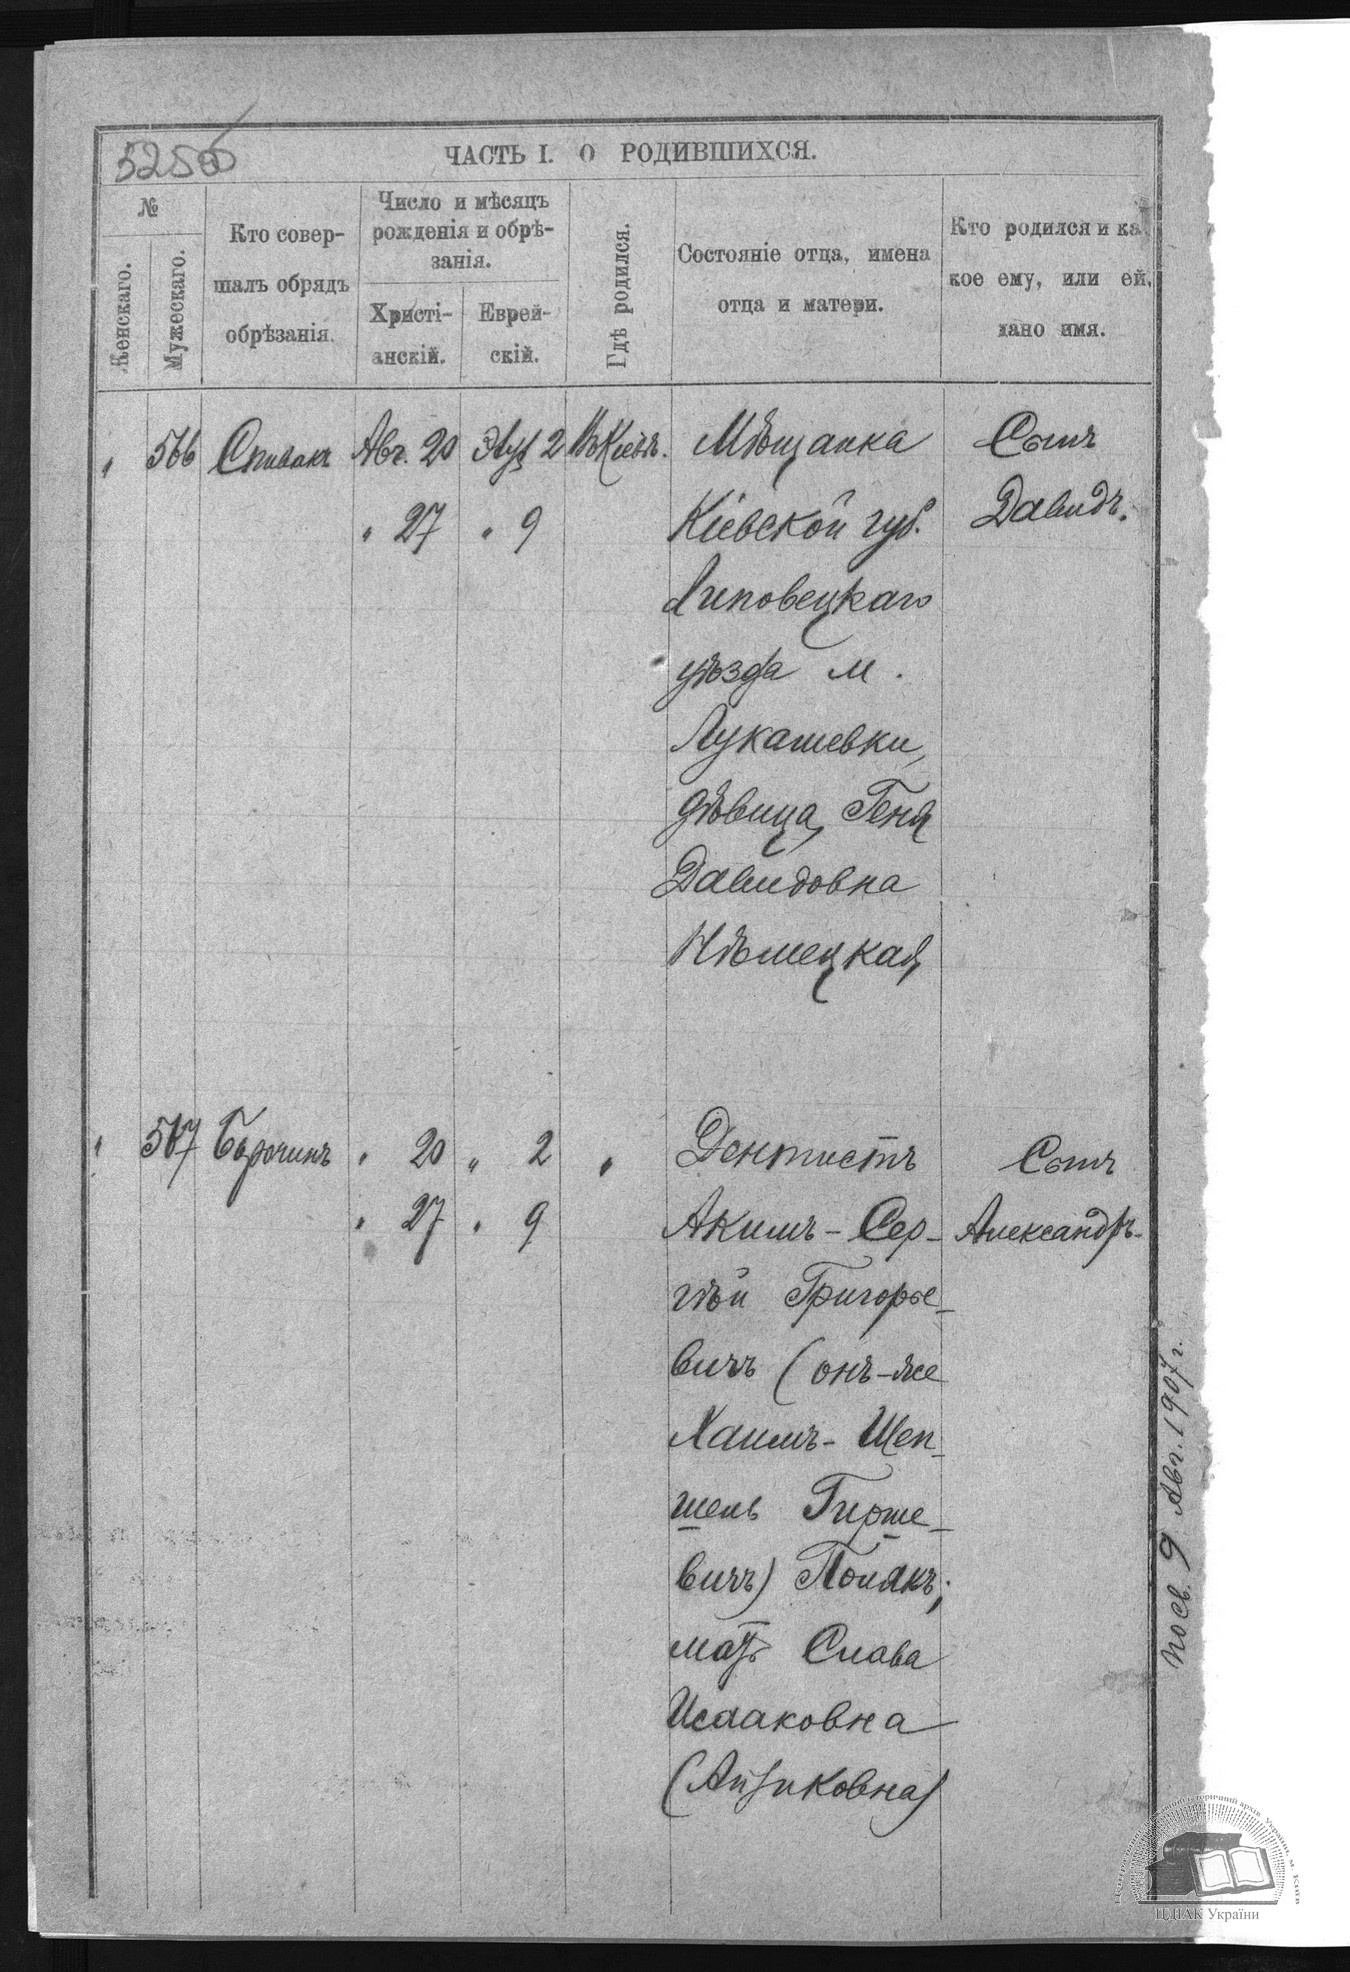 525об
ЧАСТЬ I. О РОДИВШИХСЯ.
№
Женскаго.
Мужескаго.
Кто совер-
шалъ обрядъ
обрѣзанія.
Число и мѣсяцъ
рожденія и обрѣ-
занія.
Христі-
анскій.
Еврей-
скій.
Гдѣ родился.
Состояніе отца, имена
отца и матери.
Кто родился и ка
кое ему, или ей,
дано имя.
" 566 Спивакъ Авг. 20 Элул 2 Въ Кіевѣ.
" 27 " 9
Мѣщанка
Кіевской губ.
Липовецкаго
уѣзда м.
Лукашевки,
дѣвица Геня
Давидовна
Нѣмецкая
Сынъ
Давидъ.
" 567 " 20 " 2 "
" 27 " 9
Дентистъ
Акимъ-Сер-
гѣй Григорье-
вичъ (онъ-же
Хаимъ-Шеп-
шель Гирше-
вичъ) Полякъ;
мать Слава
Исааковна
(Айзиковна)
Сынъ
Александръ.
пос. 9 Авг. 1907 г.
ЦДІАК України